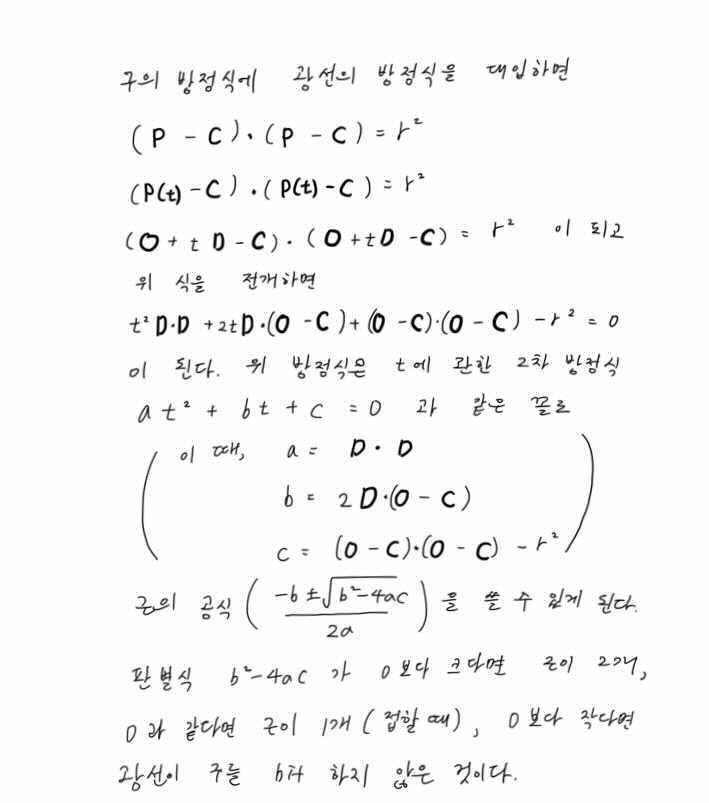 구의 방정식에 광선의 방정식을 대입하면
(P - C)·(P - C) = r²
(P(t) - C)·(P(t) - C) = r²
(O + tD - C)·(O + tD - C) = r² 이 되고
위 식을 전개하면
t²D·D + 2tD·(O - C) + (O - C)·(O - C) - r² = 0
이 된다. 위 방정식은 t에 관한 2차 방정식
at² + bt + c = 0 과 같은 꼴로
(이 때, a = D·D
b = 2D·(O - C)
c = (O - C)·(O - C) - r²)
근의 공식 ( (-b ± √(b²-4ac)) / 2a ) 을 쓸 수 있게 된다.
판별식 b²-4ac 가 0보다 크다면 근이 2개,
0과 같다면 근이 1개 (접할 때), 0보다 작다면
광선이 구를 하지 않은 것이다.